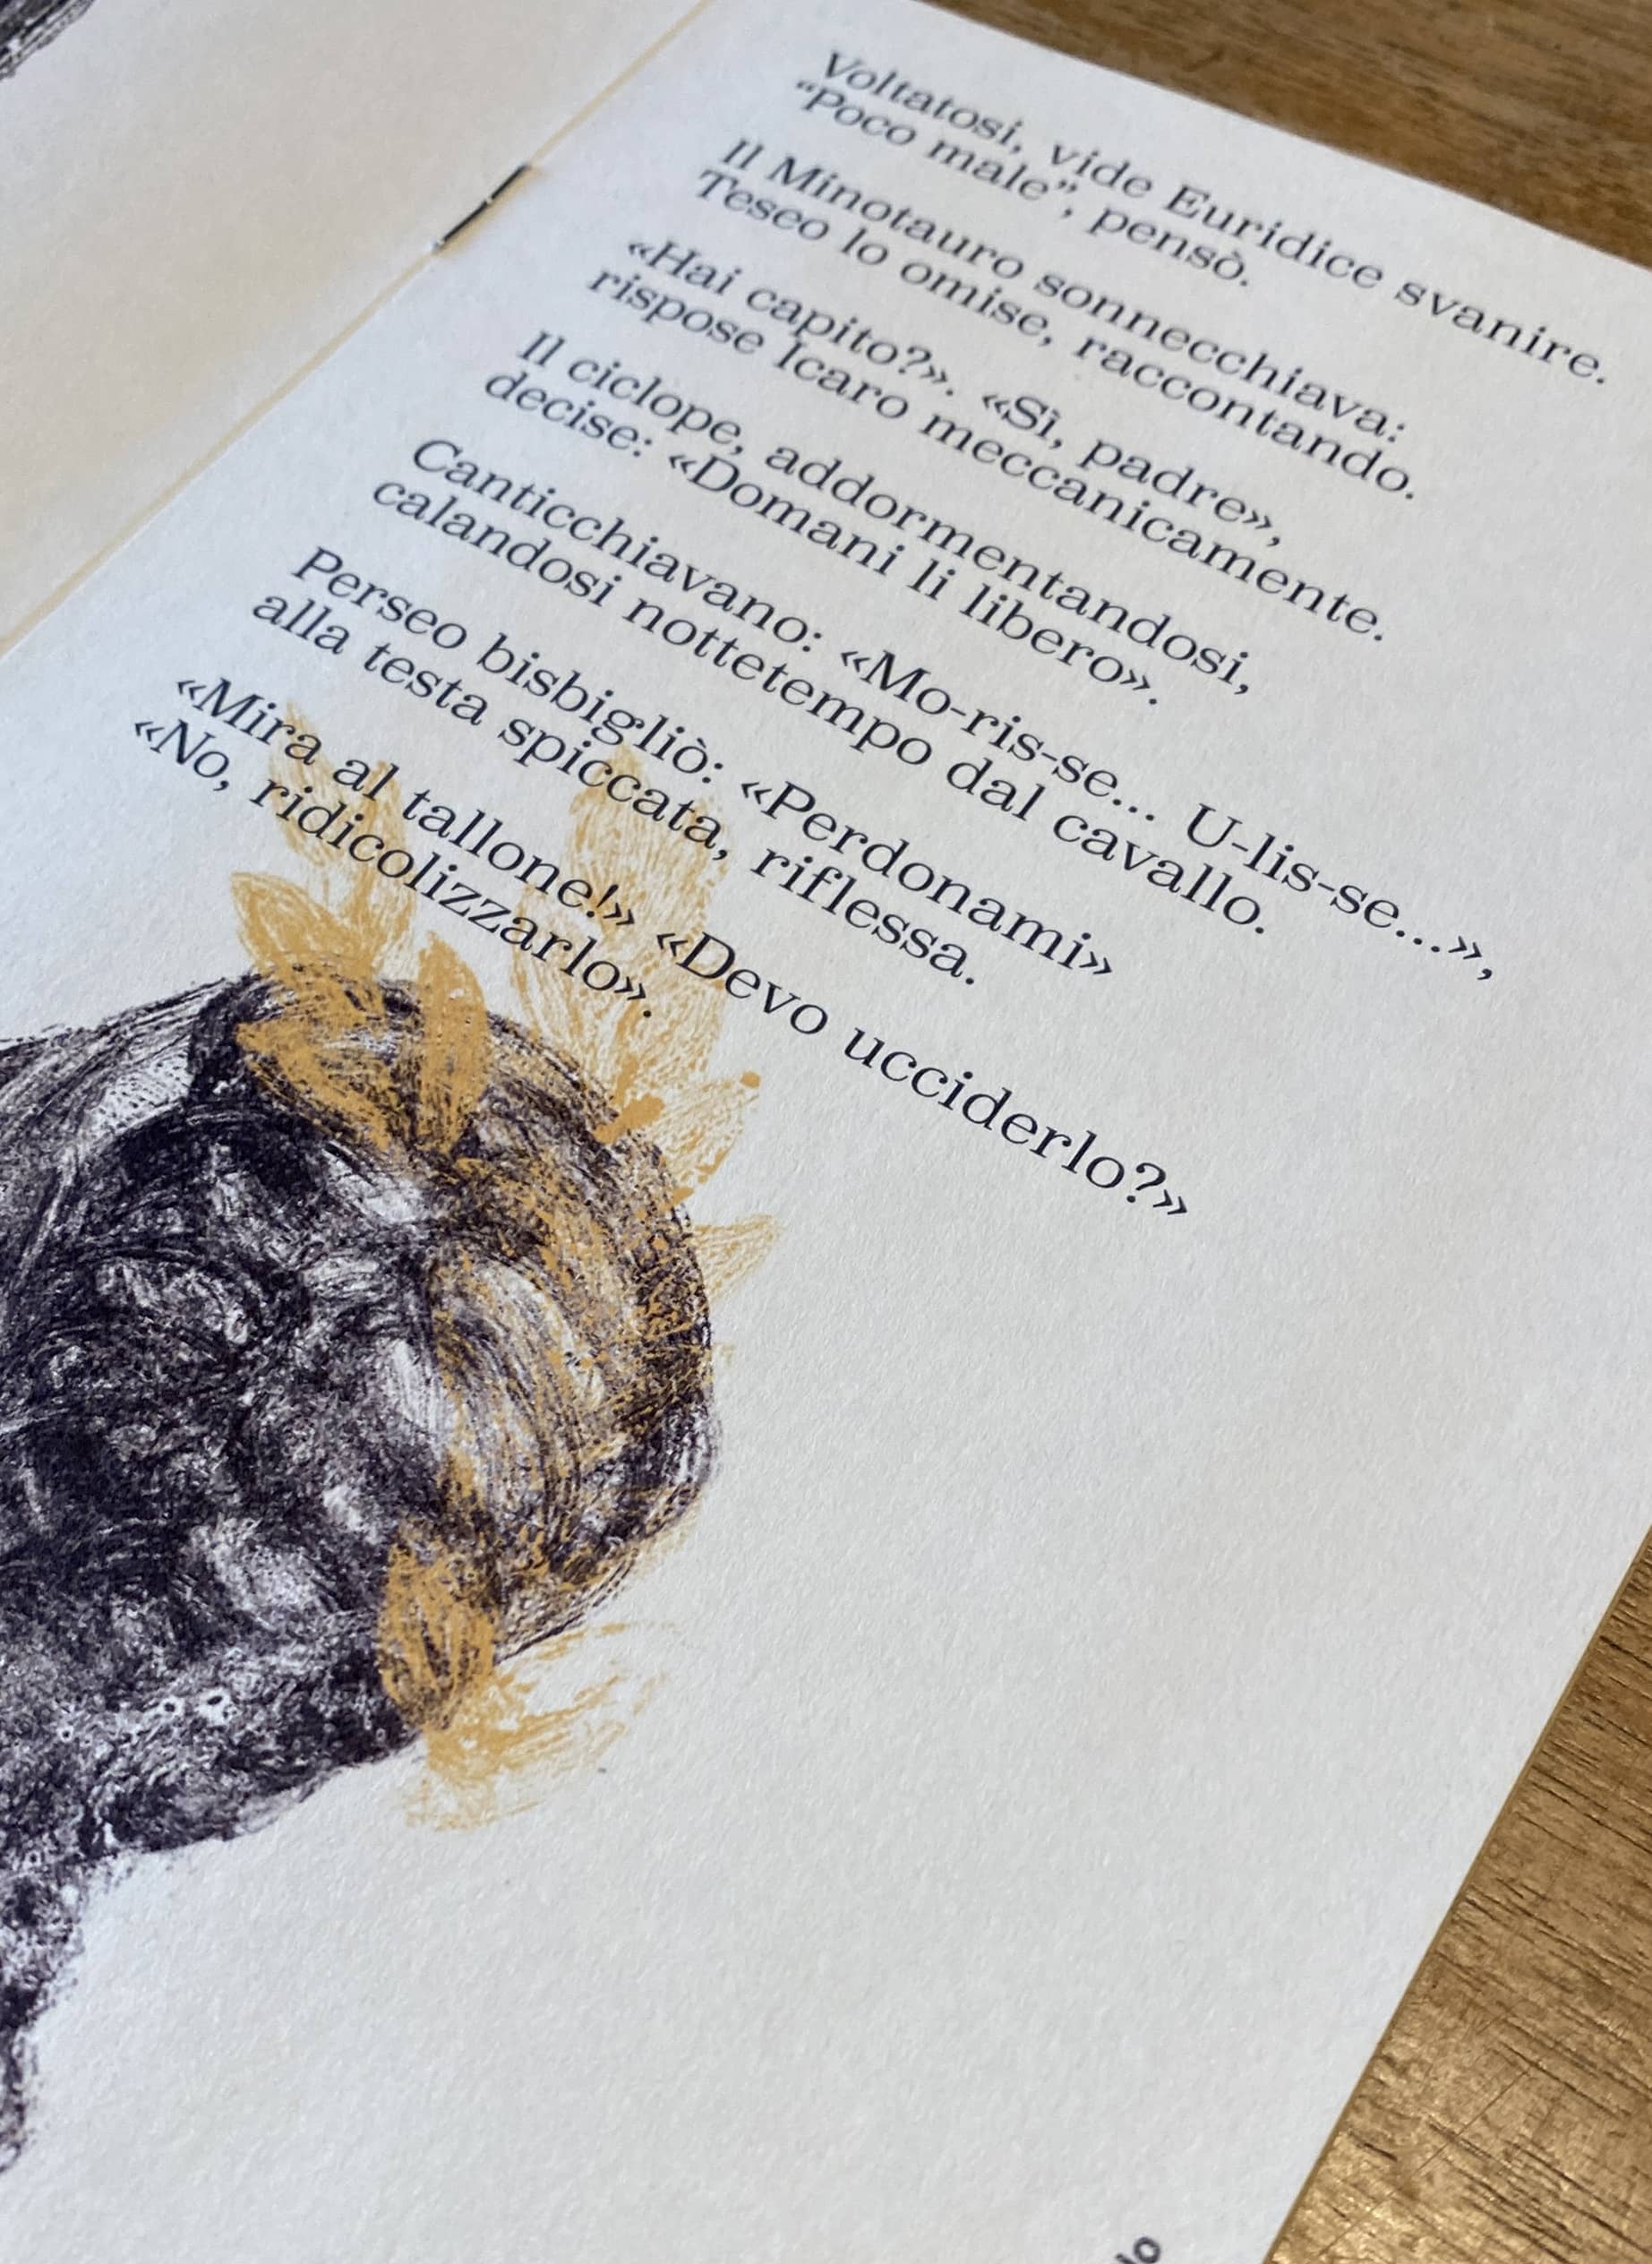 Voltatosi, vide Euridice svanire.
“Poco male”, pensò.
Il Minotauro sonnecchiava:
Teseo lo omise, raccontando.
«Hai capito?». «Sì, padre»,
rispose Icaro meccanicamente.
Il ciclope, addormentandosi,
decise: «Domani li libero».
Canticchiavano: «Mo-ris-se... U-lis-se...»,
calandosi nottetempo dal cavallo.
Perseo bisbigliò: «Perdonami»
alla testa spiccata, riflessa.
«Mira al tallone!» «Devo ucciderlo?»
«No, ridicolizzarlo».